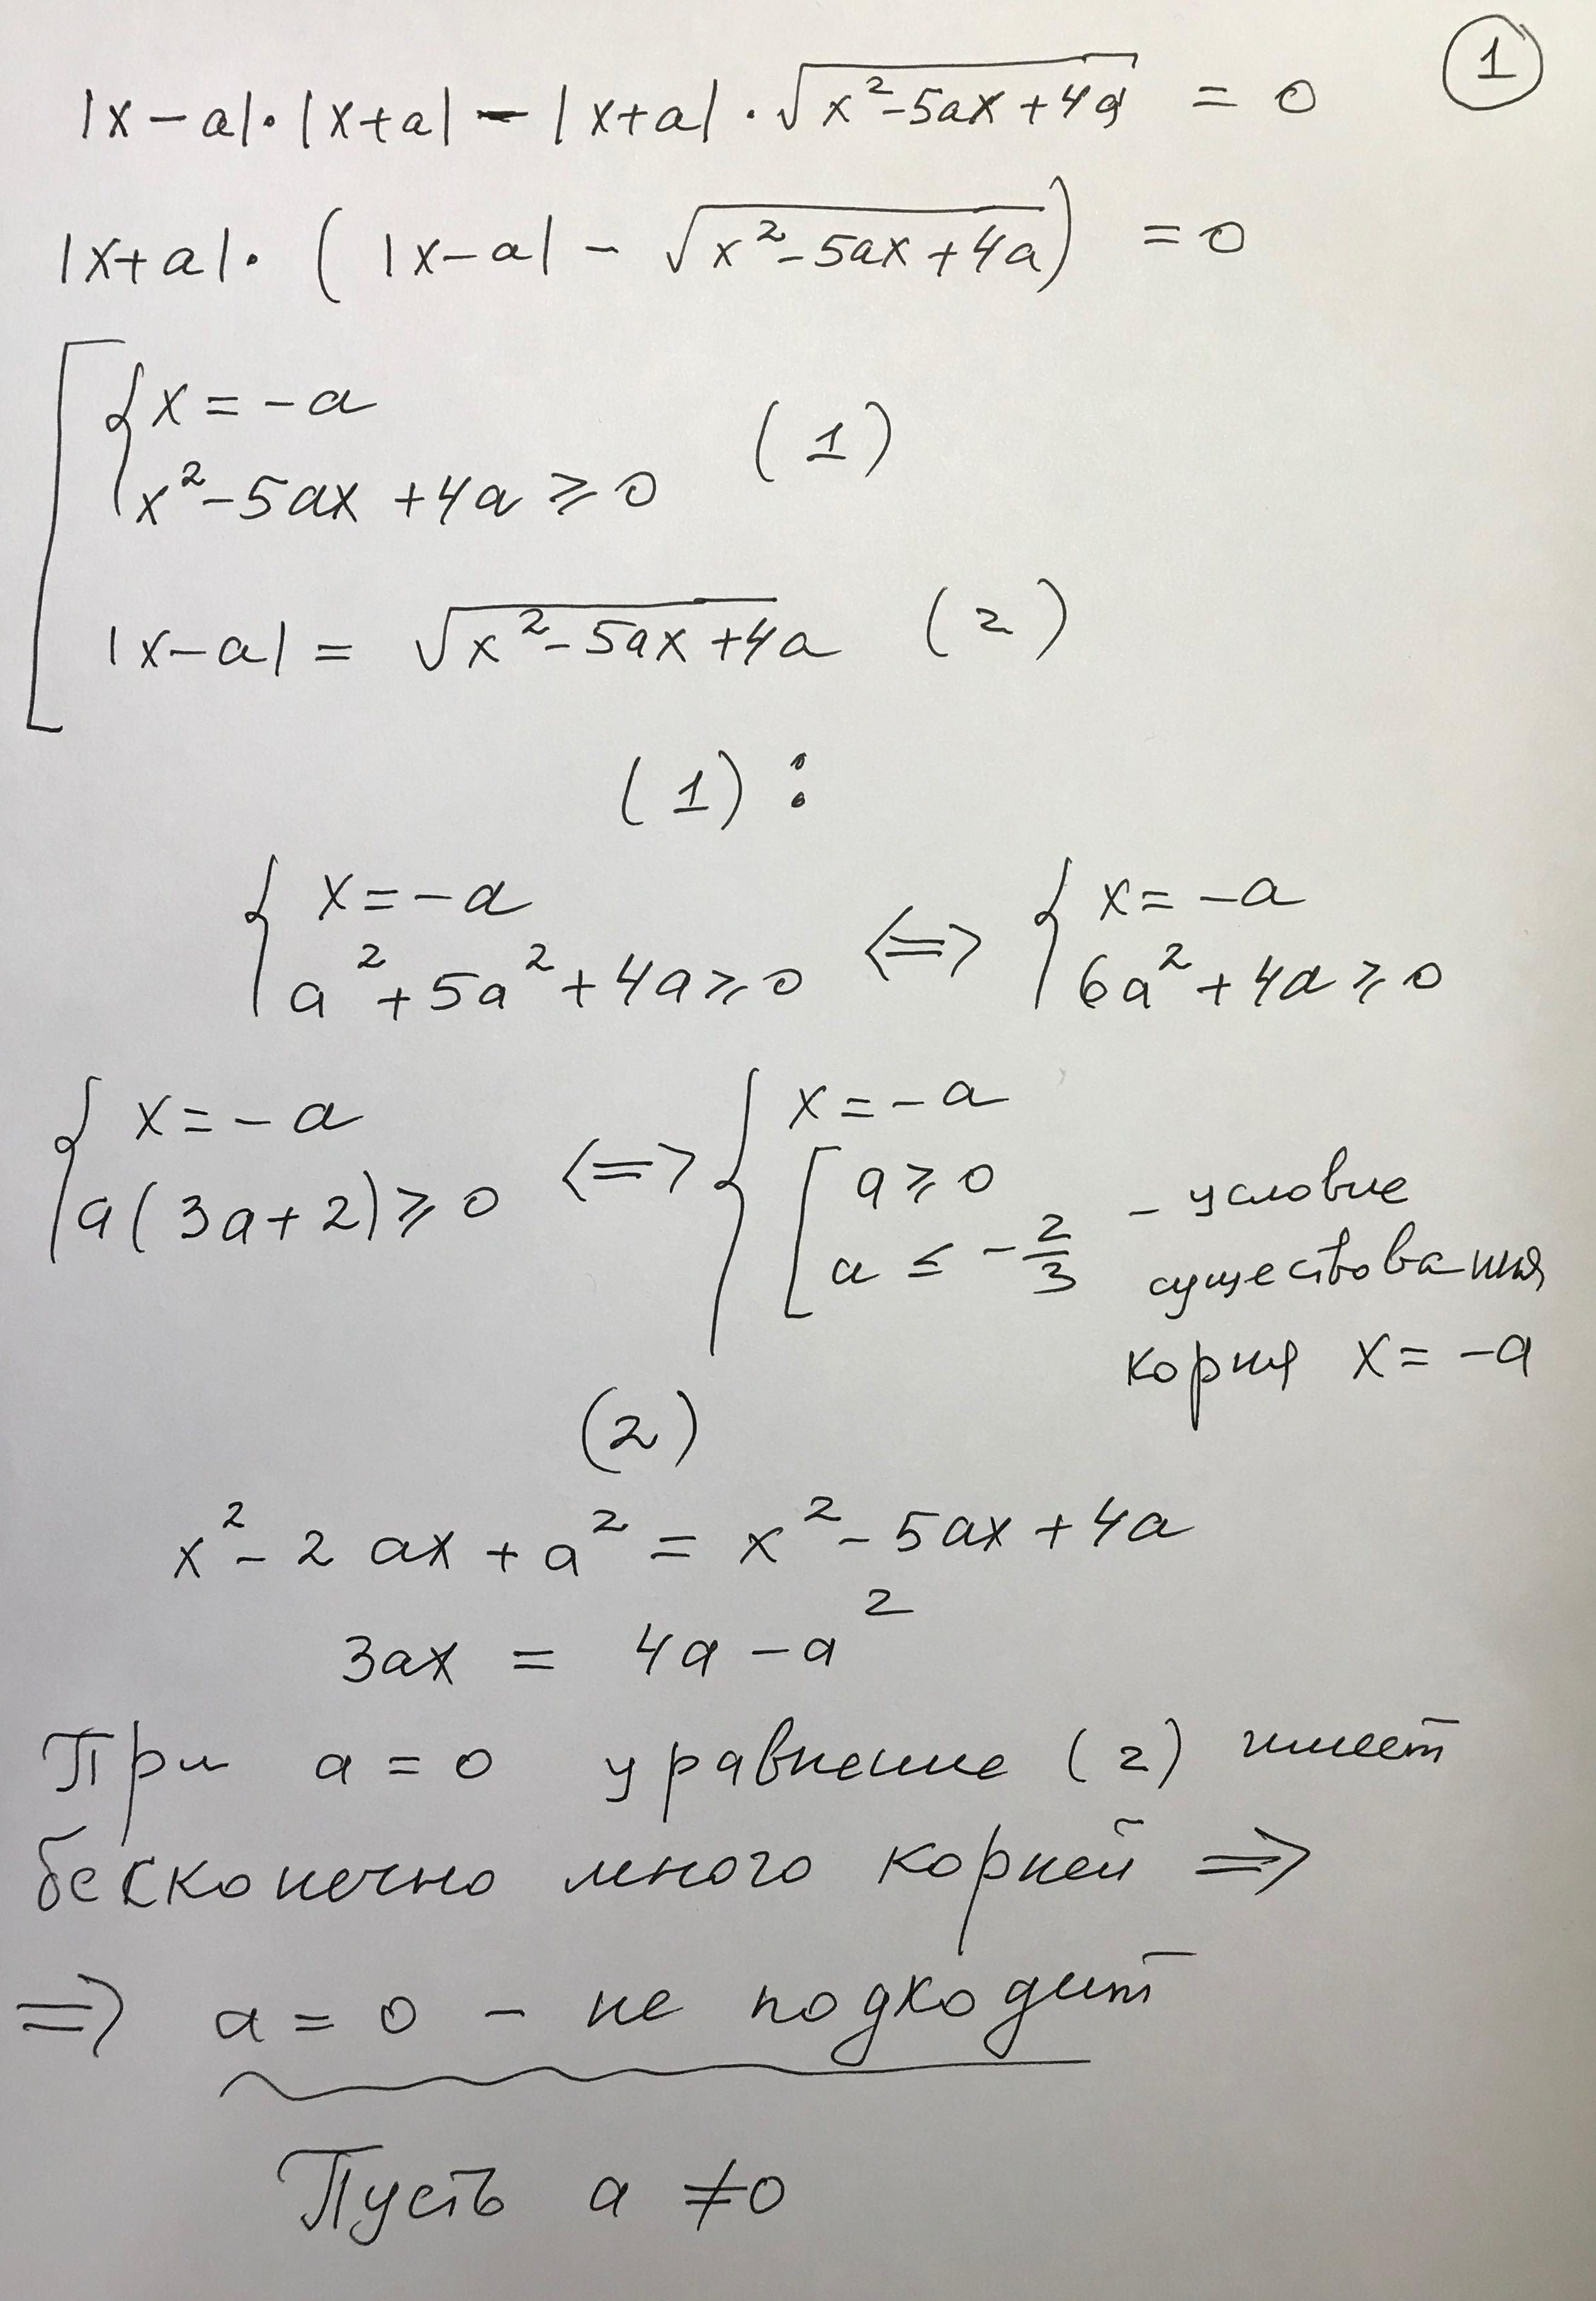 ①
|x-a|·|x+a| - |x+a|·√(x²-5ax+4a) = 0
|x+a|·(|x-a| - √(x²-5ax+4a)) = 0
[ { x = -a
x²-5ax+4a ≥ 0 (1)
|x-a| = √(x²-5ax+4a) (2)
(1):
{ x = -a
a²+5a²+4a ≥ 0 <=> { x = -a
6a²+4a ≥ 0
{ x = -a
a(3a+2) ≥ 0 <=> { x = -a
[ a ≥ 0
a ≤ -2/3 - условие
существования
корня x = -a
(2)
x²-2ax+a² = x²-5ax+4a
3ax = 4a-a²
При a = 0 уравнение (2) имеет
бесконечно много корней =>
=> a = 0 - не подходит
Пусть a ≠ 0